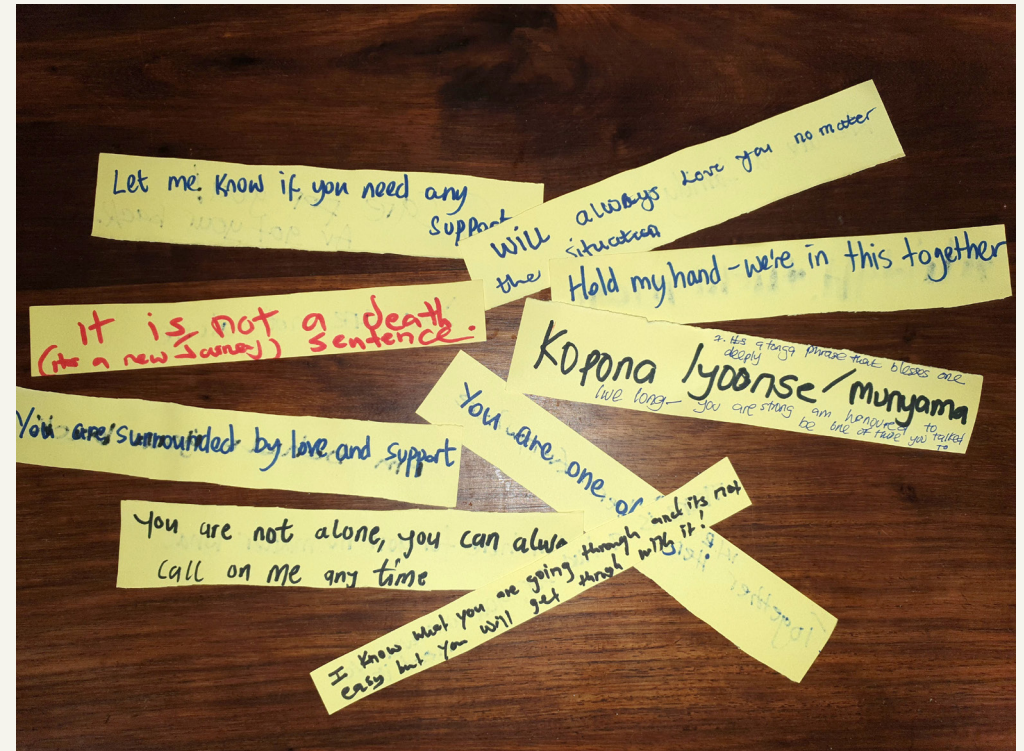 Let me know if you need any
support
will always Love you no matter
the situation
Hold my hand - we're in this together
it is not a death
(its a new Journey) sentence.
Kopona lyoonse/munyama
its a tonga phrase that blesses one
deeply
live long - you are strong am honoured to
be one of those you talked
to
You are surrounded by love and support
You are one or
You are not alone, you can alwa
call on me any time
I know what you are going through and its not
easy but you will get through with it!
Together